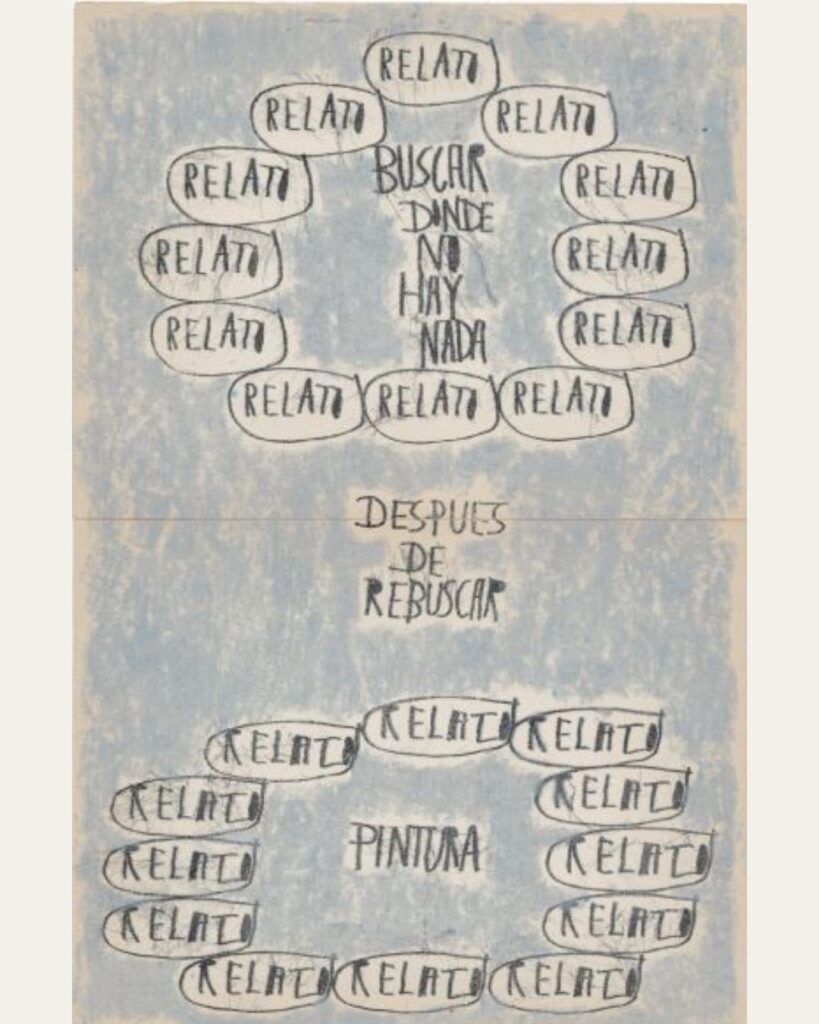 RELATO
RELATO RELATO
RELATO BUSCAR RELATO
DONDE
RELATO NO RELATO
HAY
RELATO NADA RELATO
RELATO RELATO RELATO
DESPUES
DE
REBUSCAR
RELATO RELATO RELATO
RELATO RELATO
RELATO PINTURA RELATO
RELATO RELATO
RELATO RELATO RELATO